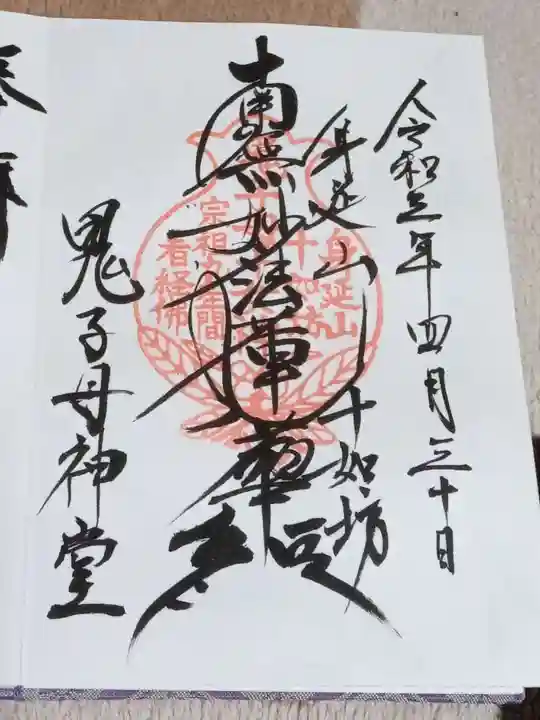 令和五年四月三十日
身延山
十如坊
南無妙法蓮華経
鬼子母神堂
身延山
十如坊
宗祖九年間
看経佛
奉拝